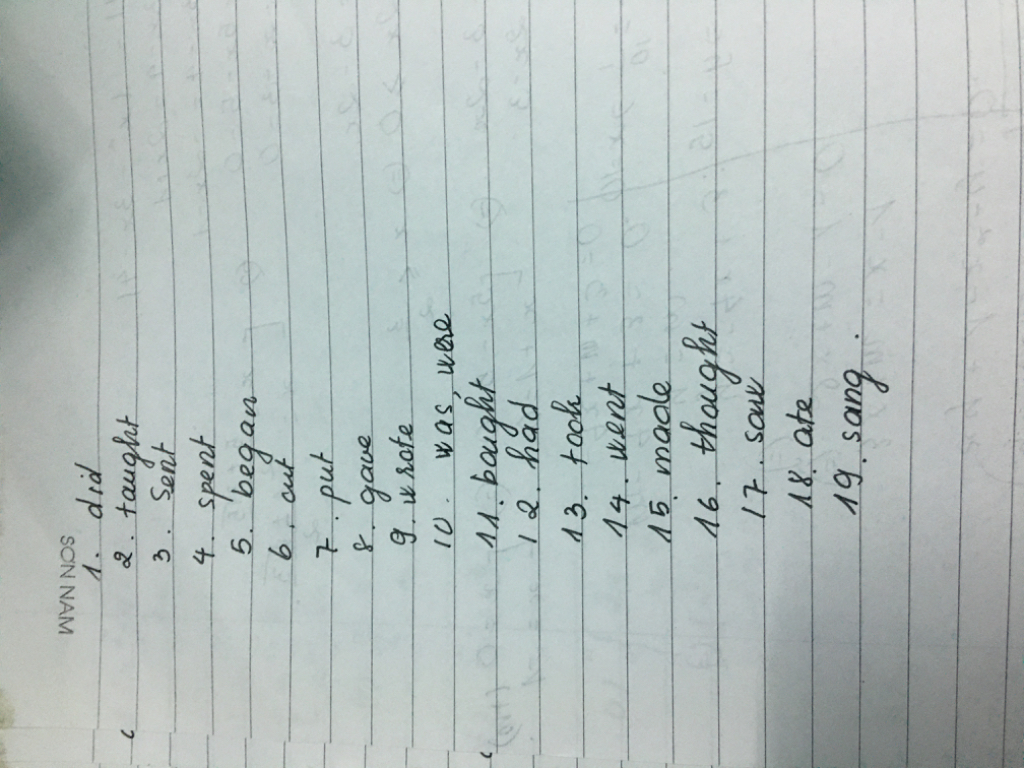 SON NAM
1. did
2. taught
3. Sent
4. spent
5. began
6. cut
7. put
8. gave
9. wrote
10. was, were
11. bought
12. had
13. took
14. went
15. made
16. thought
17. saw
18. ate
19. sang.